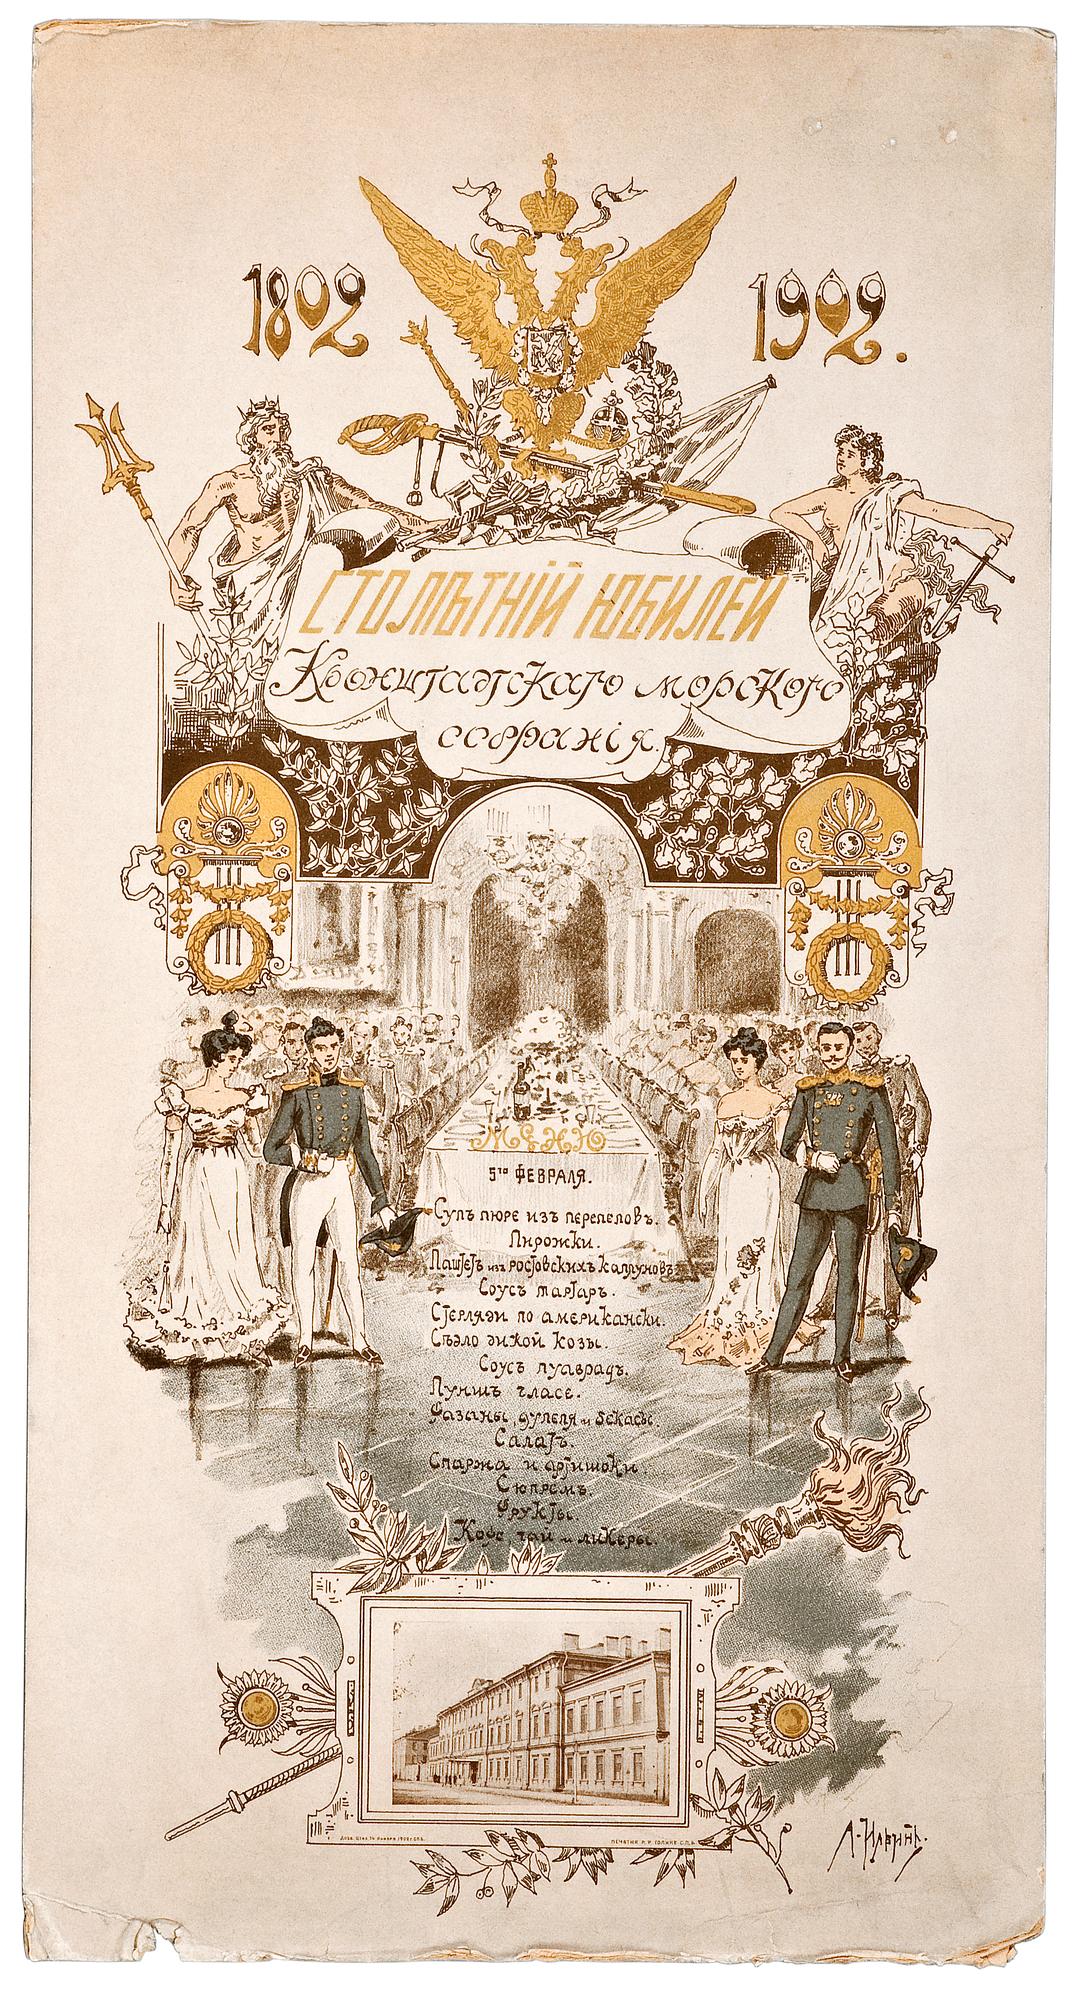 1802
1902.
СТОЛѢТНІЙ ЮБИЛЕЙ
Кронштадтскаго морского
собранія.
МЕНЮ
5го ФЕВРАЛЯ.
Супъ пюре изъ перепеловъ.
Пирожки.
Паштетъ изъ ростовскихъ каплуновъ
Соусъ тартаръ.
Стерляди по американски.
Сѣдло дикой козы.
Соусъ пуаврадъ.
Пуншъ гласе.
Фазаны, дупеля и бекасы.
Салатъ.
Спаржа и артишоки.
Сюпремъ.
Фрукты.
Кофе, чай и ликеры.
Дозв. Ценз. 14 Января 1902 г. СПБ.
ПЕЧАТНЯ Р. Р. ГОЛИКЕ С.П.Б.
А. Ильинъ.